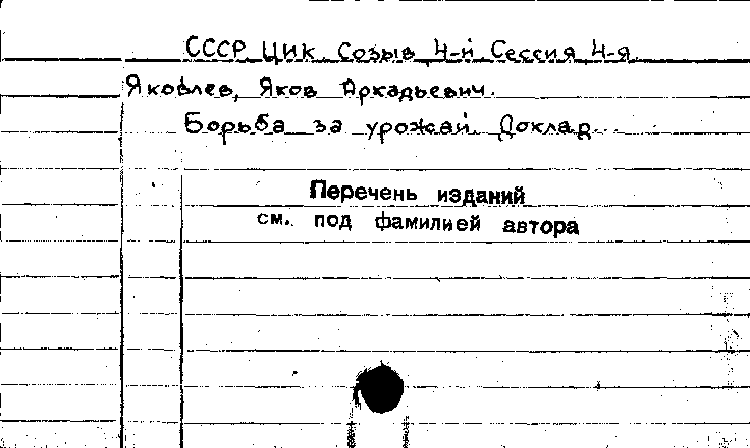 СССР ЦИК Созыв 4-й Сессия 4-я
Яковлев, Яков Аркадьевич.
Борьба за урожай Доклад.
Перечень изданий
см. под фамилией автора